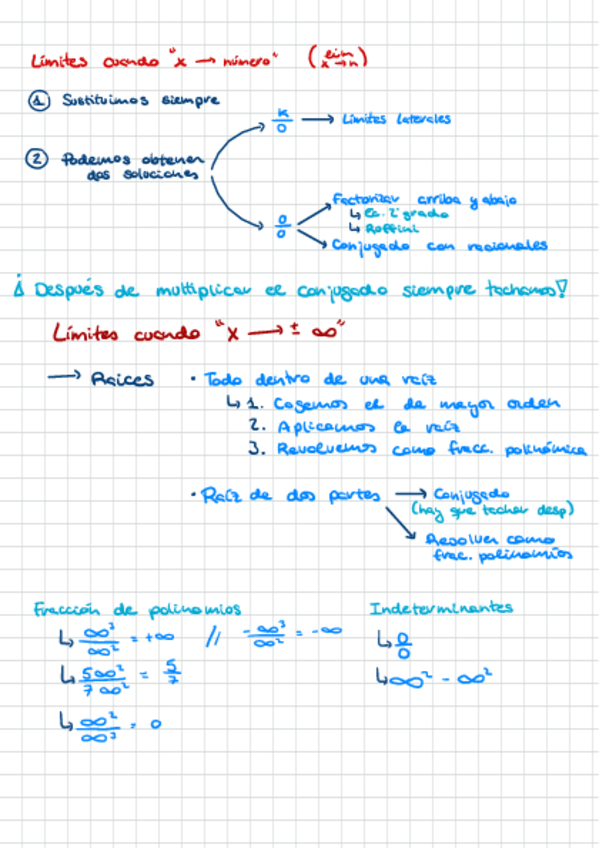 Límites cuando "x → número" (lim x→n)
① Sustituimos siempre
K/0 → Límites laterales
② Podemos obtener
dos soluciones
Factorizar arriba y abajo
↳ Ec. 2º grado
↳ Ruffini
0/0
Conjugado con racionales
¡Después de multiplicar el conjugado siempre tachamos!
Límites cuando "x → ± ∞"
→ Raices · Todo dentro de una raíz
↳ 1. Cogemos el de mayor orden
2. Aplicamos la raíz
3. Resolvemos como fracc. polinómica
· Raíz de dos partes → Conjugado
(hay que tachar desp)
Resolver como
frac. polinomios
Fracción de polinomios
↳ ∞³/∞² = +∞ // -∞³/∞² = -∞
↳ 5∞²/7∞² = 5/7
↳ ∞²/∞³ = 0
Indeterminantes
↳ 0/0
↳ ∞² - ∞²